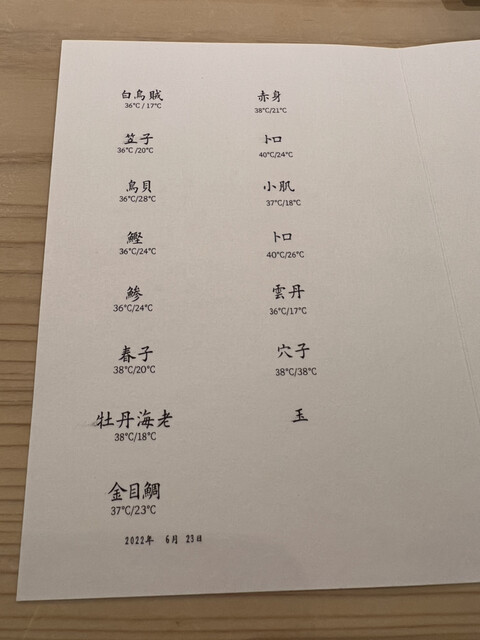 白烏賊
36℃ / 17℃
笠子
36℃ /20℃
鳥貝
36℃/28℃
鰹
36℃/24℃
鯵
36℃/24℃
春子
38℃/20℃
牡丹海老
38℃/18℃
金目鯛
37℃/23℃
赤身
38℃/21℃
トロ
40℃/24℃
小肌
37℃/18℃
トロ
40℃/26℃
雲丹
36℃/17℃
穴子
38℃/38℃
玉
2022年 6月 23日